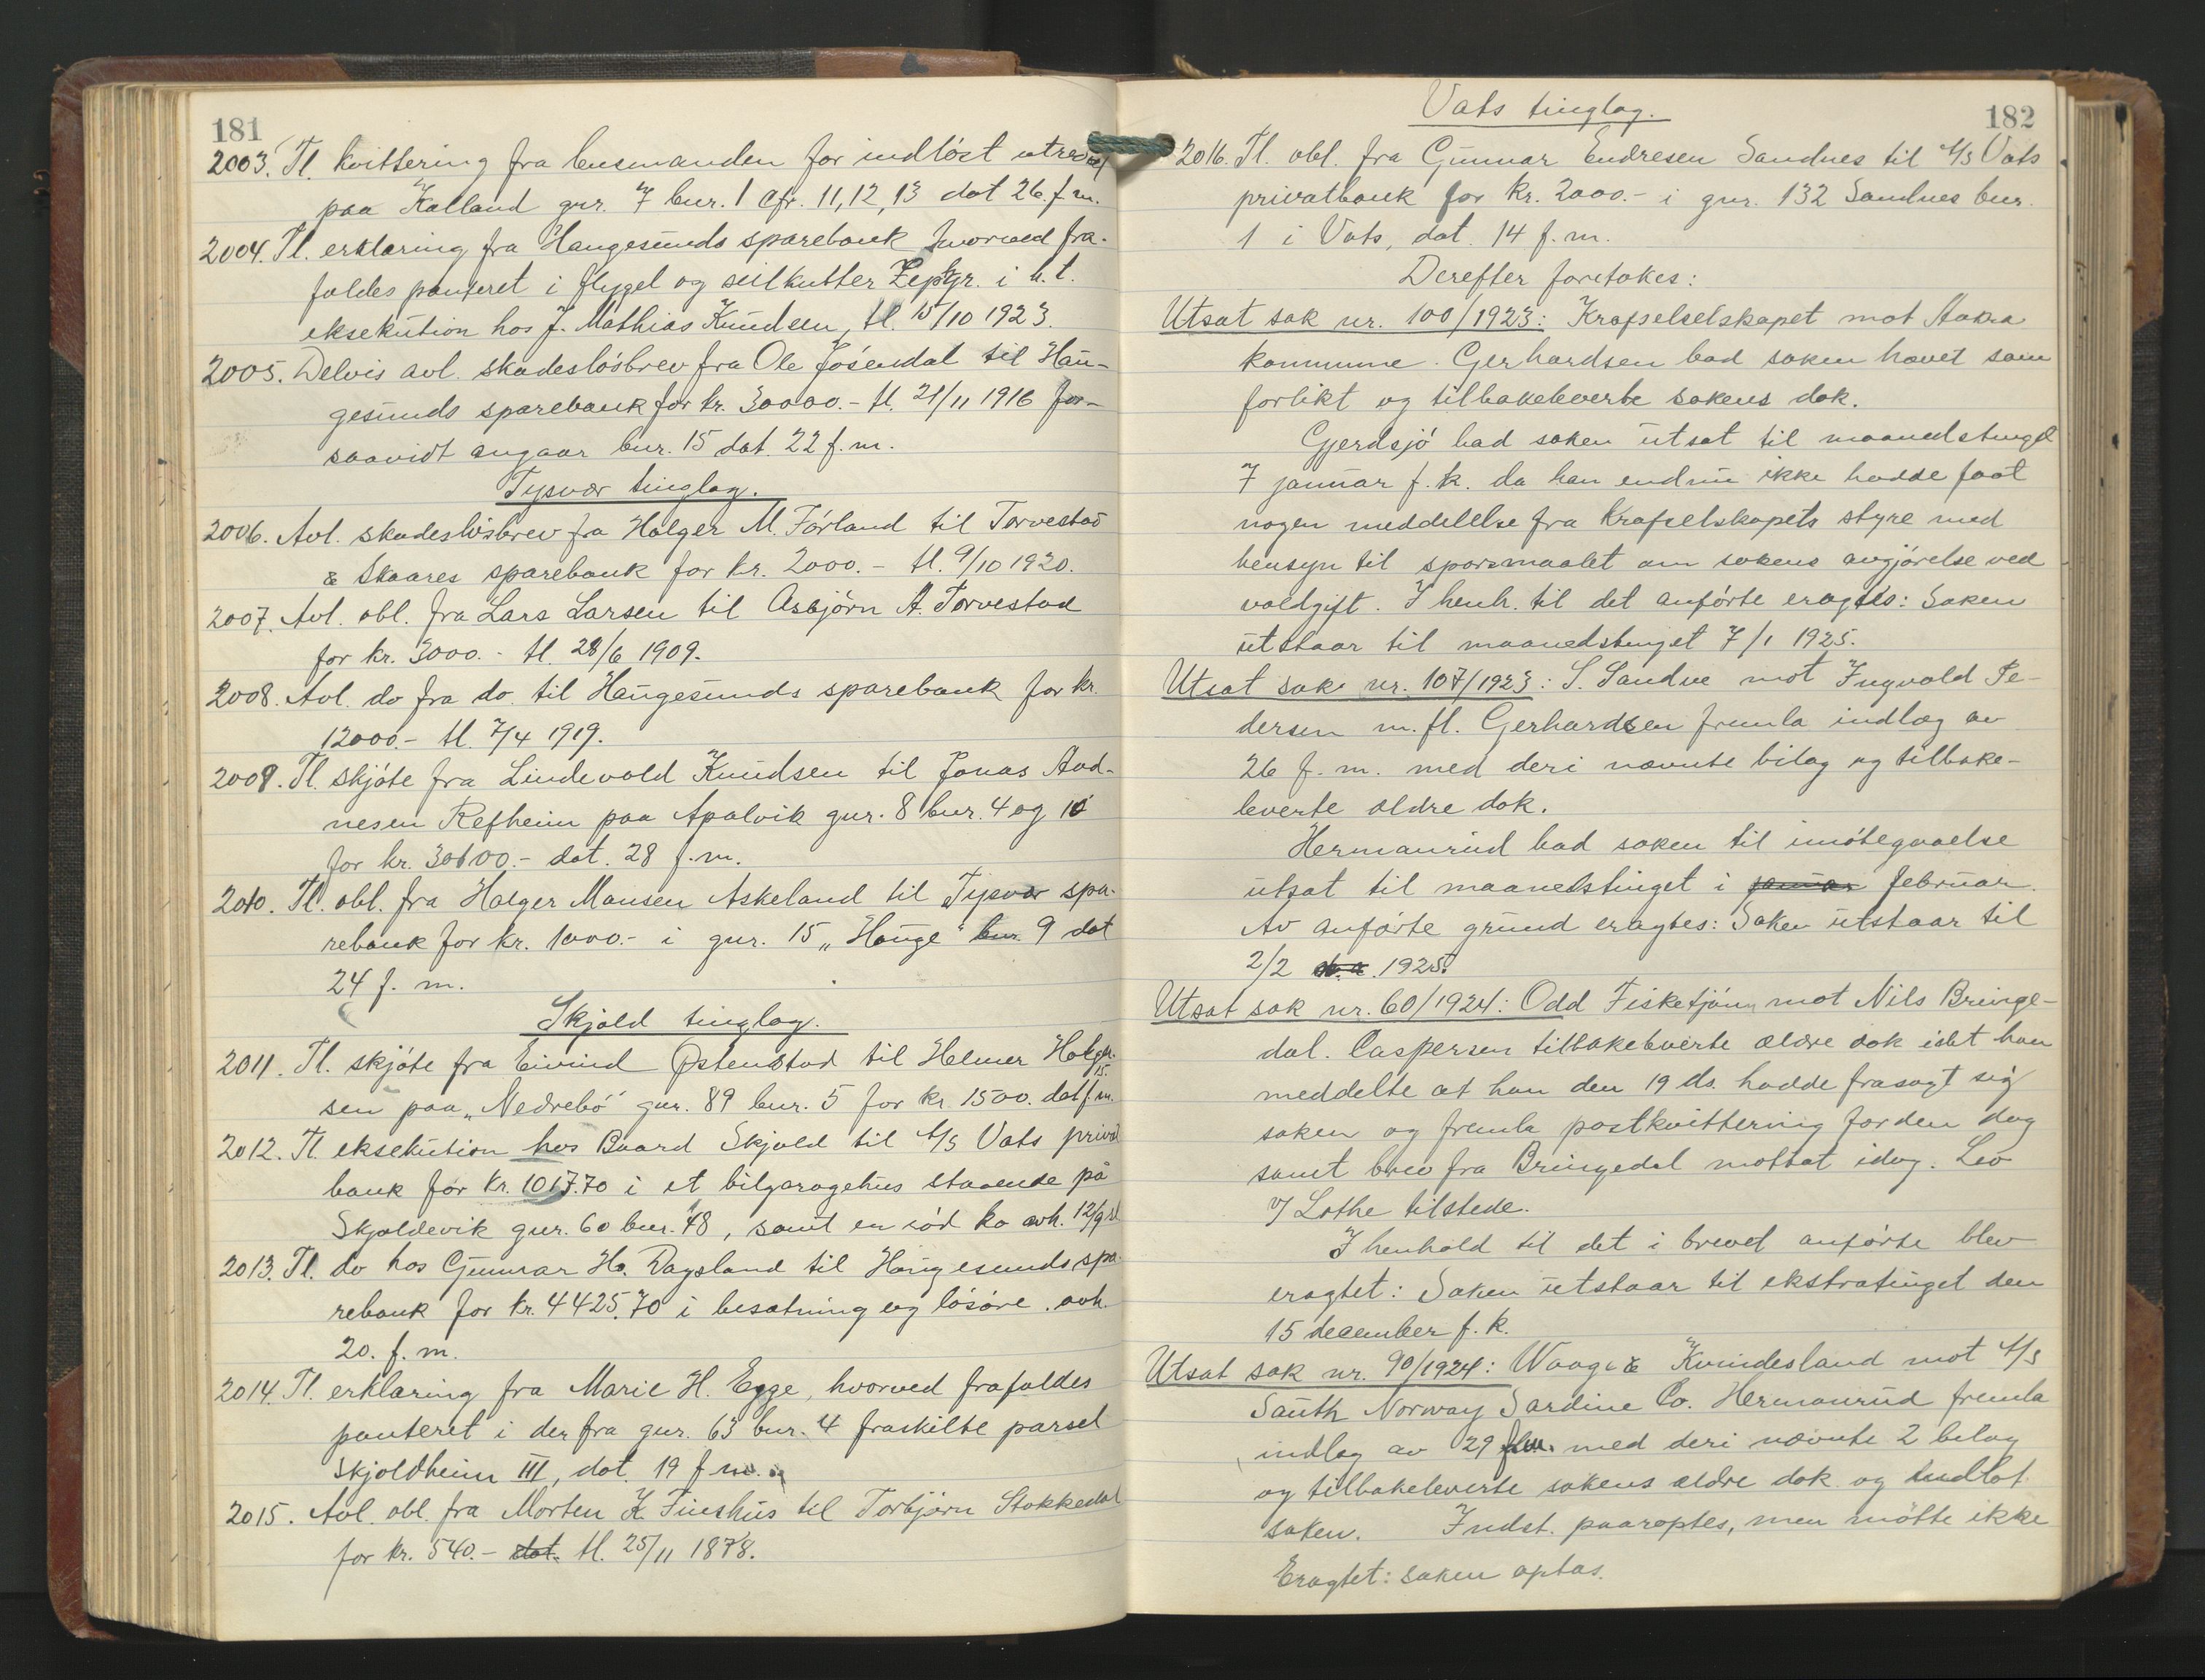 181
2003. Tl. kvittering fra lensmanden for indløst utredsel
paa Kalland gnr. 7 bnr. 1 cfr. 11, 12, 13 dat 26. f. m.
2004. Tl. erklæring fra Haugesunds sparebank hvorved fra-
faldes panteret i flygel og seilkutter Zephyr. i h. t.
eksekution hos J. Mathias Knudsen, tl. 15/10 1923.
2005. Delvis avl. skadesløsbrev fra Ole Jøsendal til Hau-
gesunds sparebank for kr. 30000.- tl. 21/11 1916 for-
saavidt angaar bnr. 15 dat. 22 f. m.
Tysvær tinglag.
2006. Avl. skadesløsbrev fra Holger M. Førland til Torvestad
& Skaares sparebank for kr. 2000.- tl. 9/10 1920.
2007. Avl. obl. fra Lars Larsen til Asbjørn A. Torvestad
for kr. 3000.- tl. 28/6 1909.
2008. Avl. do fra do. til Haugesunds sparebank for kr.
12000.- tl. 7/4 1919.
2009. Tl. skjøte fra Lindevald Knudsen til Jonas Aad-
nesen Refheim paa Apalvik gnr. 8 bnr. 4 og 10
for kr. 30600.- dat. 28 f. m.
2010. Tl. obl. fra Holger Monsen Askeland til Tysvær spa-
rebank for kr. 1000.- i gnr. 15 „Hauge" bnr. 9 dat
24 f. m.
Skjold tinglag.
2011. Tl. skjøte fra Eivind Østenstad til Helmer Holgr-
sen paa „Nedrebø" gnr. 89 bnr. 5 for kr. 1500. dat 15. f. m.
2012. Tl eksekution hos Baard Skjold til A/S Vats privat
bank for kr. 1017.70 i et bilgaragehus staaende på
Skjoldevik gnr. 60 bnr. 48, samt en rød ko avh. 12/9 sl
2013. Tl. do hos Gunnar Ha. Dagsland til Haugesunds spa-
rebank for kr. 4425.70 i besætning og løsøre. avh.
20. f. m.
2014. Tl. erklæring fra Marie H. Egge, hvorved frafaldes
panteret i den fra gnr. 63 bnr. 4 fraskilte parsel
Skjoldheim III, dat. 19 f. m.
2015. Avl. obl. fra Morten K. Tineshus til Torbjørn Stakkedal
for kr. 540.- dat. tl. 25/11 1878.
Vats tinglag.
182
2016. Tl. obl. fra Gunnar Endresen Sandnes til A/S Vats
privatbank for kr. 2000.- i gnr. 132 Sandnes bnr.
1 i Vats, dat. 14 f. m.
Derefter foretokes:
Utsat sak nr. 100/1923: Krafselselskapet mot Aakra
kommune. Gerhardsen bad saken hævet som
forlikt og tilbakeleverte sakens dok.
Gjerdsjø bad saken utsat til maanedstinget
7 januar f. k. da han endnu ikke hadde faat
nogen meddelelse fra Krafselskapets styre med
hensyn til spørsmaalet om sakens avgjørelse ved
voldgift. I henh. til det anførte eragtes: Saken
utstaar til maanedstinget 7/1 1925.
Utsat sak nr. 107/1923: S. Sandve mot Ingvald Pe-
dersen m. fl. Gerhardsen fremla indlæg av
26 f. m. med deri nævnte bilag og tilbake-
leverte ældre dok.
Hermanrud bad saken til imøtegaaelse
utsat til maanedstinget i januar februar.
Av anførte grund eragtes: Saken utstaar til
2/2 1925.
Utsat sak nr. 60/1924: Odd Fisketjøn mot Nils Bringe-
dal. Caspersen tilbakeleverte ældre dok idet han
meddelte at han den 19 ds. hadde frasagt sig
saken og fremla postkvittering for den dag
samt brev fra Bringedal mottat idag. Leo
V/ Lothe tilstede.
I henhold til det i brevet anførte blev
eragtet: Saken utstaar til ekstratinget den
15 december f. k.
Utsat sak nr. 90/1924: Waage & Kvindesland mot A/S
South Norway Sardine Co. Hermanrud fremla
indlæg av 29 f. m. med deri nævnte 2 bilag
og tilbakeleverte sakens ældre dok og indlot
saken. Indst. paaroptes, men møtte ikke
Eragtet: saken optas.